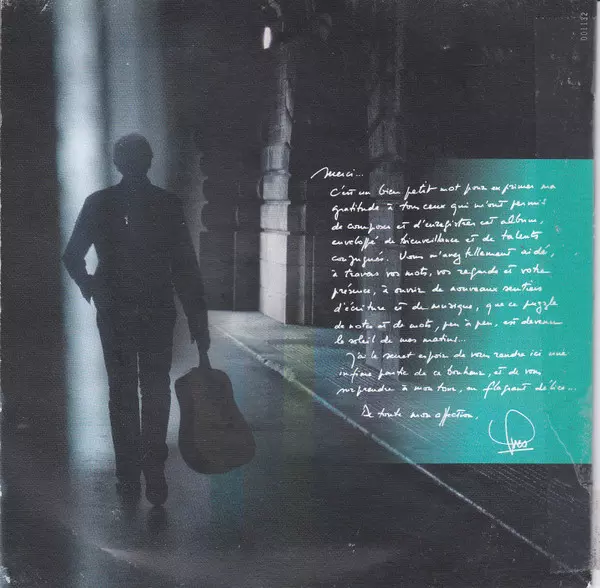 001132
Merci...
C'est un bien petit mot pour exprimer ma
gratitude à tous ceux qui m'ont permis
de composer et d'enregistrer cet album,
enveloppé de bienveillance et de talents
conjugués. Vous m'avez tellement aidé,
à travers vos mots, vos regards et votre
présence, à ouvrir de nouveaux sentiers
d'écriture et de musique, que ce puzzle
de notes et de mots, peu à peu, est devenu
le soleil de mes matins...
J'ai le secret espoir de vous rendre ici une
infime partie de ce bonheur, et de vous
surprendre à mon tour, en flagrant délice...
De toute mon affection.
Yves